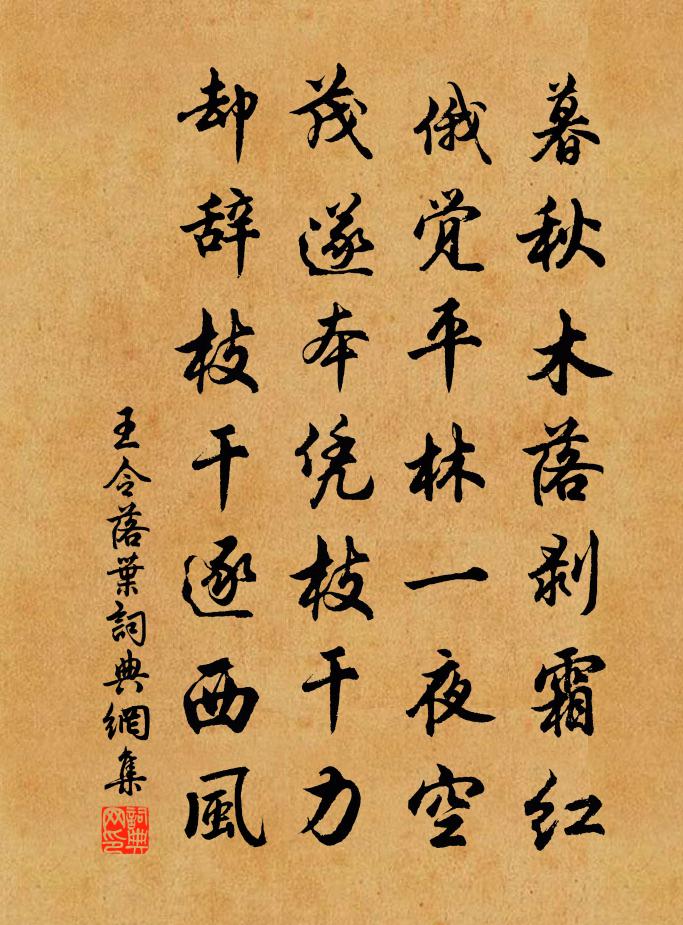 暮秋木落剥霜红
俄觉平林一夜空
茂遂本凭枝干力
却辞枝干逐西風
王令落葉詞典網集
詞典网印